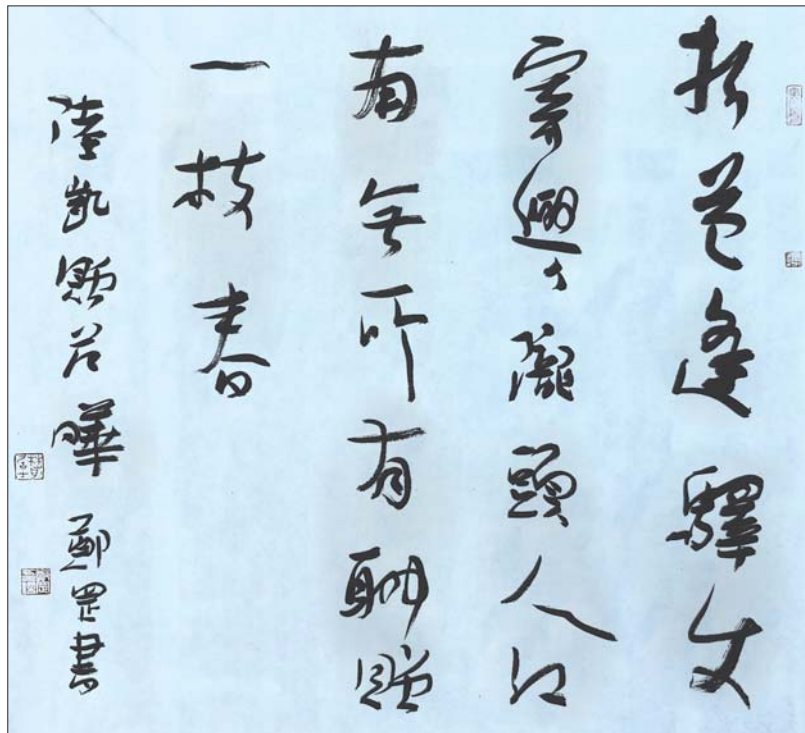 折花逢驛使
寄與隴頭人江
南無所有聊贈
一枝春
陸凱贈范曄 鄭罡書